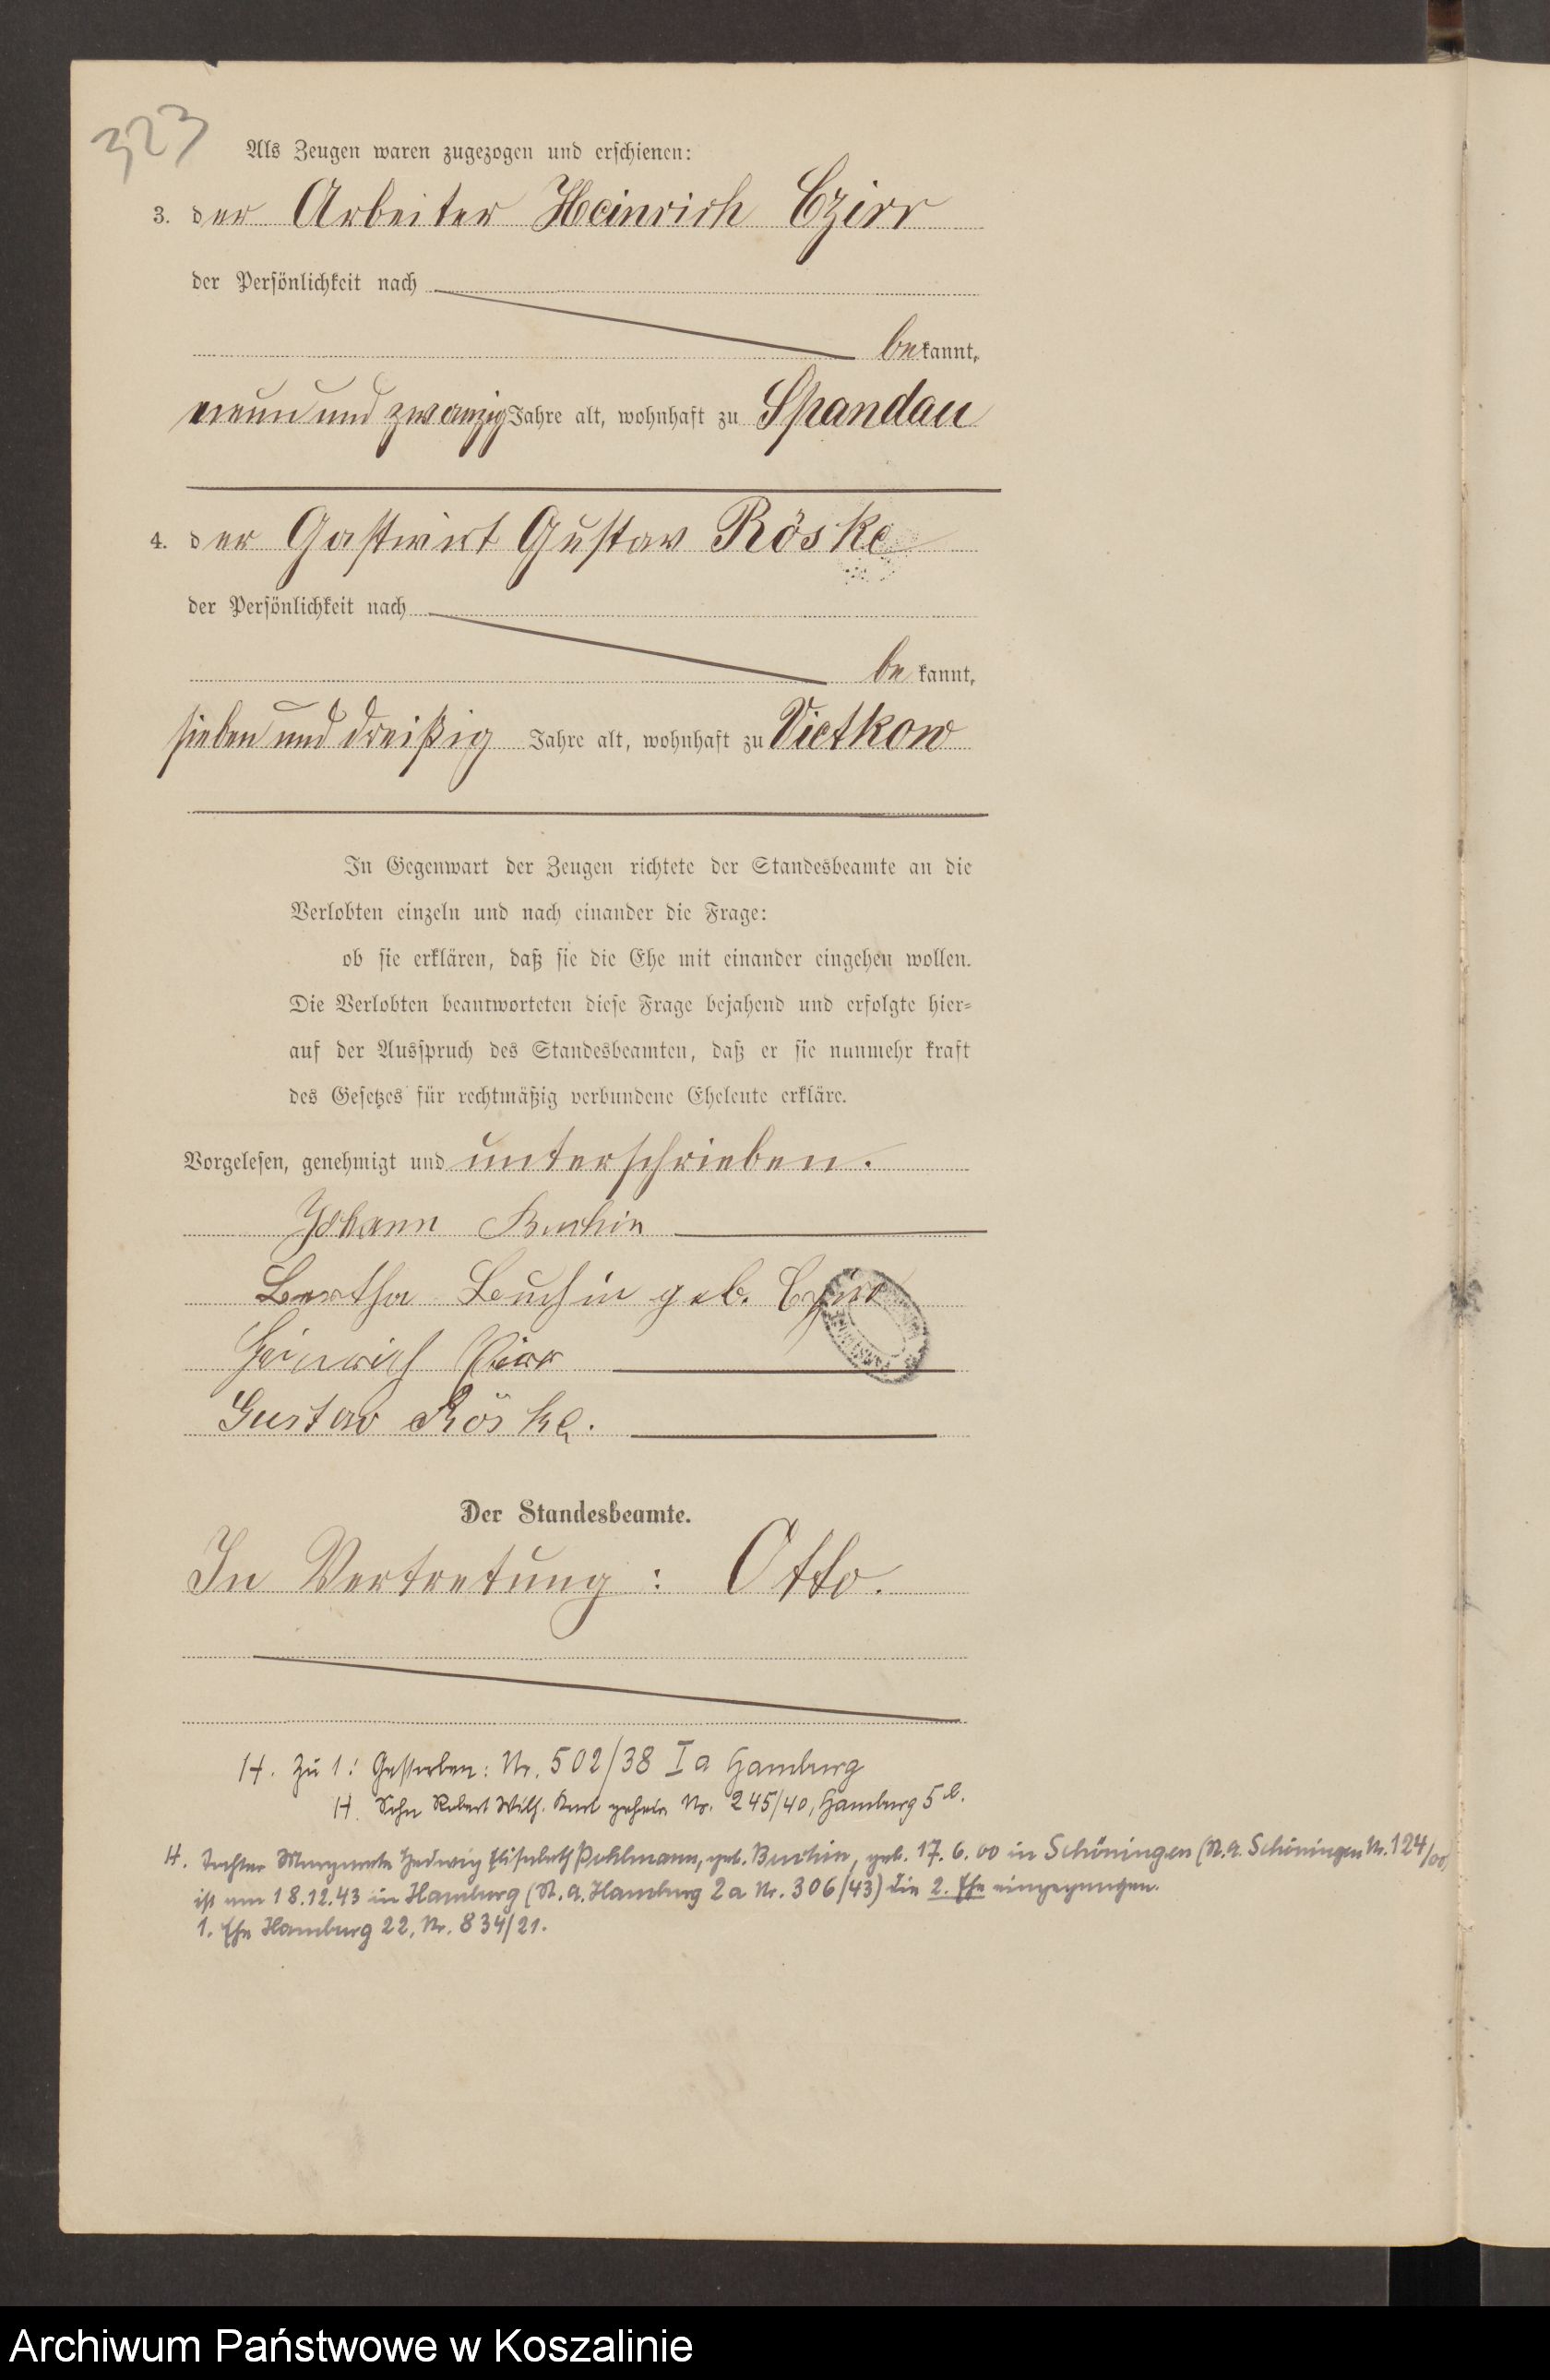 323
Als Zeugen waren zugezogen und erschienen:
3. der Arbeiter Heinrich Czirr
der Persönlichkeit nach
bekannt,
neun und zwanzig Jahre alt, wohnhaft zu Spandau
4. der Gastwirt Gustav Röske
der Persönlichkeit nach
be kannt,
sieben und dreißig Jahre alt, wohnhaft zu Vietkow
In Gegenwart der Zeugen richtete der Standesbeamte an die
Verlobten einzeln und nach einander die Frage:
ob sie erklären, daß sie die Ehe mit einander eingehen wollen.
Die Verlobten beantworteten diese Frage bejahend und erfolgte hier=
auf der Ausspruch des Standesbeamten, daß er sie nunmehr kraft
des Gesetzes für rechtmäßig verbundene Eheleute erkläre.
Vorgelesen, genehmigt und unterschrieben.
Johann Buchin
Bertha Buchin geb. Czirr
Heinrich Czirr
Gustav Röske.
Der Standesbeamte.
In Vertretung: Otto.
H. Zu 1: Gestorben: Nr. 502/38 Ia Hamburg
H. Sohn Robert Wilh. Karl geheir. Nr. 245/40, Hamburg 5b.
H. Tochter Margarete Hedwig Elisabeth Pohlmann, geb. Buchin, geb. 17.6.00 in Schöningen (St.A. Schöningen Nr. 124/00)
ist am 18.12.43 in Hamburg (St.A. Hamburg 2a Nr. 306/43) die 2. Ehe eingegangen.
1. Ehe Hamburg 22, Nr. 834/21.
Archiwum Państwowe w Koszalinie